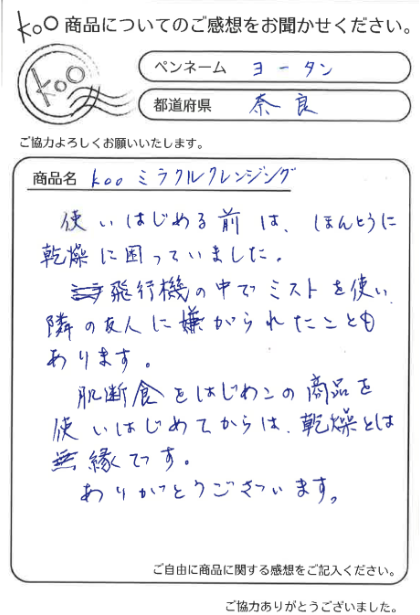 koo 商品についてのご感想をお聞かせください。
koo
ペンネーム ヨータン
都道府県 奈良
ご協力よろしくお願いいたします。
商品名 koo ミラクルクレンジング
使いはじめる前は、ほんとうに
乾燥に困っていました。
飛行機の中でミストを使い、
隣の友人に嫌がられたことも
あります。
肌断食をはじめこの商品を
使いはじめてからは、乾燥とは
無縁です。
ありがとうございます。
ご自由に商品に関する感想をご記入ください。
ご協力ありがとうございました。